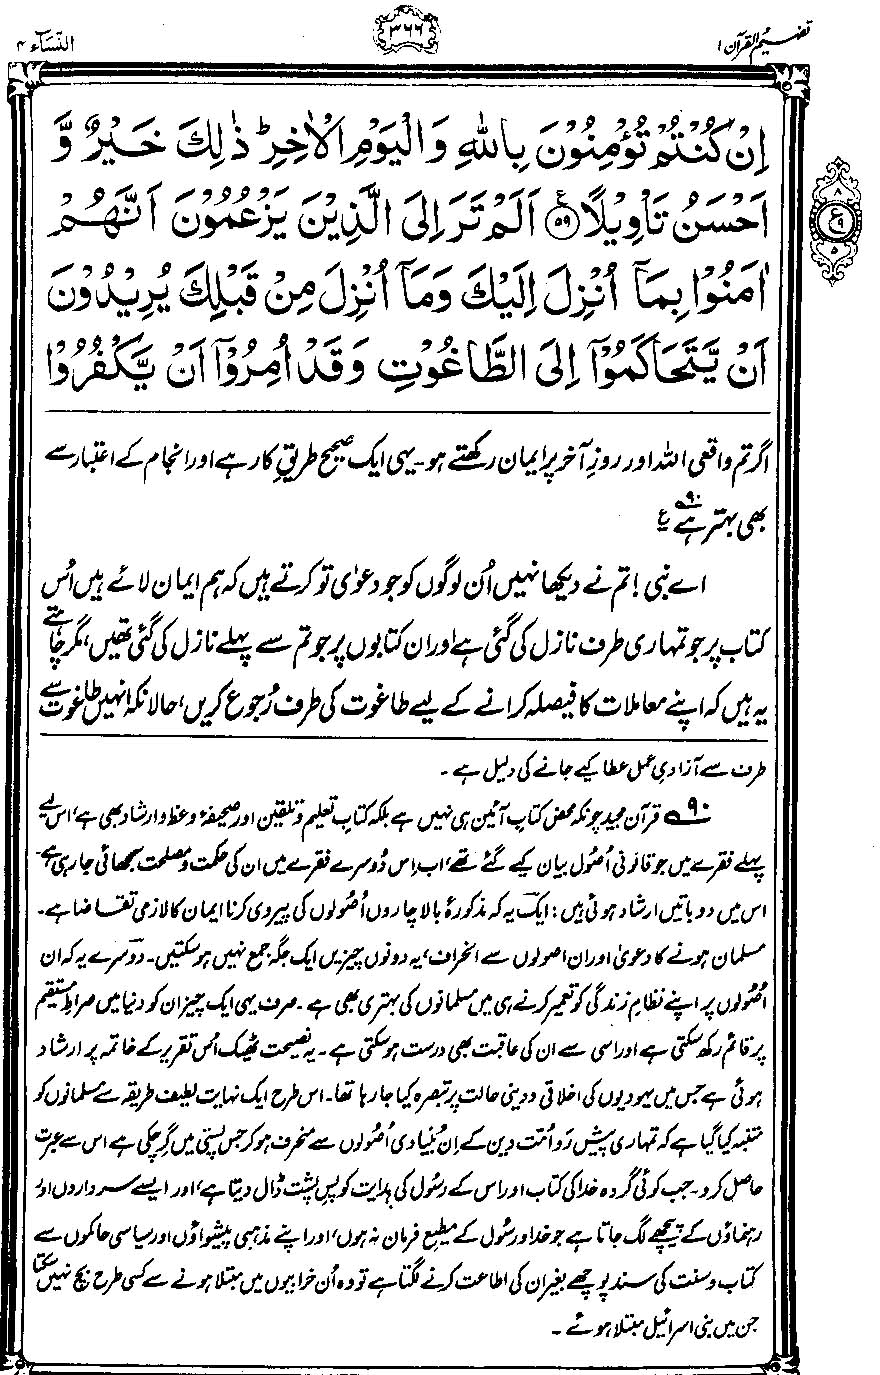 تفہیم القرآن ۱
۳۶۶
النّسَآء ۴
اِنْ كُنْتُمْ تُؤْمِنُوْنَ بِاللّٰهِ وَالْيَوْمِ الْاٰخِرِ ؕ ذٰلِكَ خَيْرٌ وَّ
اَحْسَنُ تَاْوِيْلًا ﴿۵۹﴾ ع اَلَمْ تَرَ اِلَى الَّذِيْنَ يَزْعُمُوْنَ اَنَّهُمْ
۸
ع ۹
۵
اٰمَنُوْا بِمَآ اُنْزِلَ اِلَيْكَ وَمَآ اُنْزِلَ مِنْ قَبْلِكَ يُرِيْدُوْنَ
اَنْ يَّتَحَاكَمُوْٓا اِلَى الطَّاغُوْتِ وَقَدْ اُمِرُوْٓا اَنْ يَّكْفُرُوْا
اگر تم واقعی اللہ اور روزِ آخر پر ایمان رکھتے ہو۔ یہی ایک صحیح طریقِ کار ہے اور انجام کے اعتبار سے
بھی بہتر ہے ۹۰ ع
اے نبی! تم نے دیکھا نہیں اُن لوگوں کو جو دعوٰی تو کرتے ہیں کہ ہم ایمان لائے ہیں اُس
کتاب پر جو تمہاری طرف نازل کی گئی ہے اور ان کتابوں پر جو تم سے پہلے نازل کی گئی تھیں، مگر چاہتے
یہ ہیں کہ اپنے معاملات کا فیصلہ کرانے کے لیے طاغوت کی طرف رُجوع کریں، حالانکہ انہیں طاغوت سے
طرف سے آزادیِ عمل عطا کیے جانے کی دلیل ہے۔
۹۰ قرآن مجید چونکہ محض کتابِ آئین ہی نہیں ہے بلکہ کتابِ تعلیم و تلقین اور صحیفۂ وعظ و ارشاد بھی ہے، اس لیے
پہلے فقرے میں جو قانونی اُصول بیان کیے گئے تھے، اب اِس دُوسرے فقرے میں ان کی حکمت و مصلحت سمجھائی جا رہی ہے۔
اس میں دو باتیں ارشاد ہوئی ہیں: ایک یہ کہ مذکورۂ بالا چاروں اُصولوں کی پیروی کرنا ایمان کا لازمی تقاضا ہے۔
مسلمان ہونے کا دعویٰ اور ان اصولوں سے انحراف، یہ دونوں چیزیں ایک جگہ جمع نہیں ہو سکتیں۔ دوسرے یہ کہ ان
اُصُولوں پر اپنے نظامِ زندگی کو تعمیر کرنے ہی میں مسلمانوں کی بہتری بھی ہے۔ صرف یہی ایک چیز ان کو دنیا میں صراطِ مستقیم
پر قائم رکھ سکتی ہے اور اسی سے ان کی عاقبت بھی درست ہو سکتی ہے۔ یہ نصیحت ٹھیک اُس تقریر کے خاتمہ پر ارشاد
ہوئی ہے جس میں یہودیوں کی اخلاقی و دینی حالت پر تبصرہ کیا جا رہا تھا۔ اس طرح ایک نہایت لطیف طریقہ سے مسلمانوں کو
متنبہ کیا گیا ہے کہ تمہاری پیش رَو اُمّت دین کے اِن بُنیادی اُصُولوں سے منحرف ہو کر جس پستی میں گِر چکی ہے اس سے عبرت
حاصل کرو۔ جب کوئی گروہ خدا کی کتاب اور اس کے رسُول کی ہدایت کو پسِ پشت ڈال دیتا ہے، اور ایسے سرداروں اور
رہنماؤں کے پیچھے لگ جاتا ہے جو خدا و رسُول کے مطیعِ فرمان نہ ہوں، اور اپنے مذہبی پیشواؤں اور سیاسی حاکموں سے
کتاب و سنّت کی سند پوچھے بغیر ان کی اطاعت کرنے لگتا ہے تو وہ اُن خرابیوں میں مبتلا ہونے سے کسی طرح بچ نہیں سکتا
جن میں بنی اسرائیل مبتلا ہوئے۔